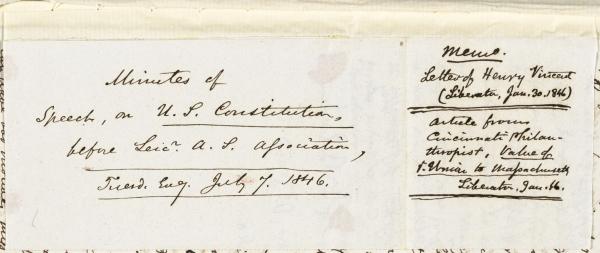 Minutes of
Speech, on U.S. Constitution,
before Leicr. A. S. Association,
Tuesd. Evg. July 7. 1846.
Memo.
Letter of Henry Vincent
(Liberator, Jan. 30. 1846)
Article from
Cincinnati Philan-
thropist, Value of
Union to Massachusetts
Liberator, Jan. 46.